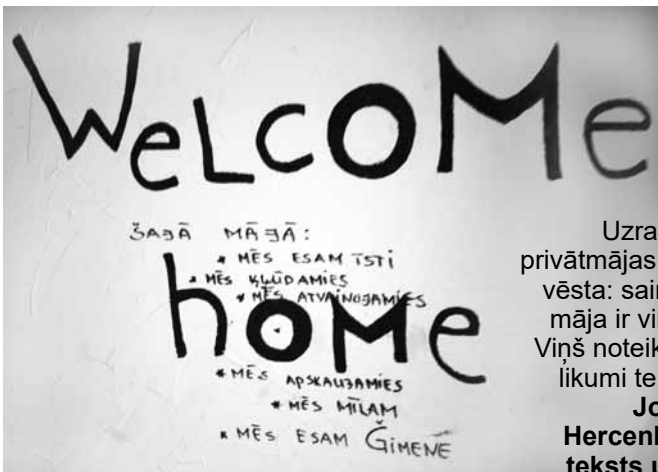 WeLcoMe
ŠAJĀ MĀJĀ:
* MĒS ESAM ĪSTI
* MĒS KĻŪDAMIES
* MĒS ATVAINOJAMIES
hoMe
* MĒS APSKAUJAMIES
* MĒS MĪLAM
* MĒS ESAM ĢIMENE
privātmājas
vēsta:
māja ir
Viņš
likumi te
teksts